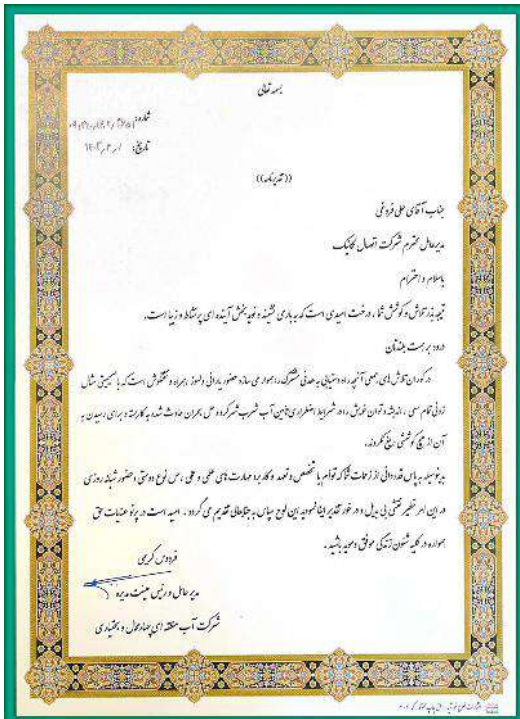 بسمه تعالی
شماره:
تاریخ: ۱۴۰۳٫۲٫۱
((تقدیرنامه))
جناب آقای علی فروغی
مدیرعامل محترم شرکت اتصال مکانیک
باسلام و احترام
نتیجه بذر تلاش و کوشش شما، درخت امیدی است که به باری نشیند و نوید بخش آینده ای پرنشاط و زیبا است.
درود بر همت بلندتان
در کوران تلاش های جمعی آنچه راه دستیابی به هدفی مشترک را هموار می سازد حضور یارانی دلسوز، همراه و سختکوش است که با صمیمیتی مثال
زدنی تمام سعی، اندیشه و توان خویش را در شرایط اضطراری تامین آب شرب شهرکرد و حل بحران حادث شده به کار بسته و برای رسیدن به
آن از هیچ کوششی دریغ نکردند.
بدینوسیله به پاس قدردانی از زحمات شما که توام با تخصص و تعهد و کاربرد مهارت های علمی و عملی، حس نوع دوستی و حضور شبانه روزی
در این امر خطیر نقشی بی بدیل و در خور تقدیر ایفا نمودید این لوح سپاس به جنابعالی تقدیم می گردد. امید است در پرتو عنایات حق
همواره در کلیه شئون زندگی موفق و موید باشید.
فردوس کریمی
مدیر عامل و رئیس هیئت مدیره
شرکت آب منطقه ای چهارمحال و بختیاری